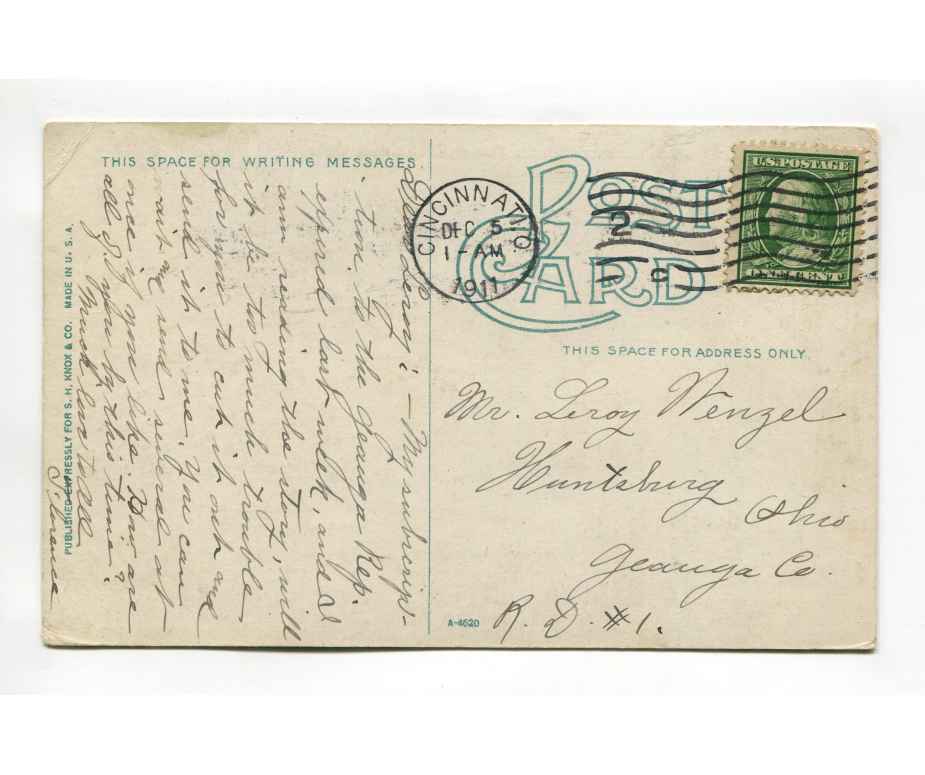 THIS SPACE FOR WRITING MESSAGES.
Dear Leroy: — My subscrip-
tion to the Geauga Rep.
expired last week, and I
am reading the story, will
it be too much trouble
for you to cut it out and
send it to me. You can
wait and send several at
once if you like. How are
all of you by this time?
Much love to all
Florence
PUBLISHED EXPRESSLY FOR S. H. KNOX & CO. MADE IN U. S. A.
POST CARD
CINCINNATI, O.
DEC 5
1-AM
1911
2
U.S. POSTAGE
THIS SPACE FOR ADDRESS ONLY.
Mr. Leroy Wenzel
Huntsburg
Ohio
Geauga Co.
R. D. #1.
A-4620